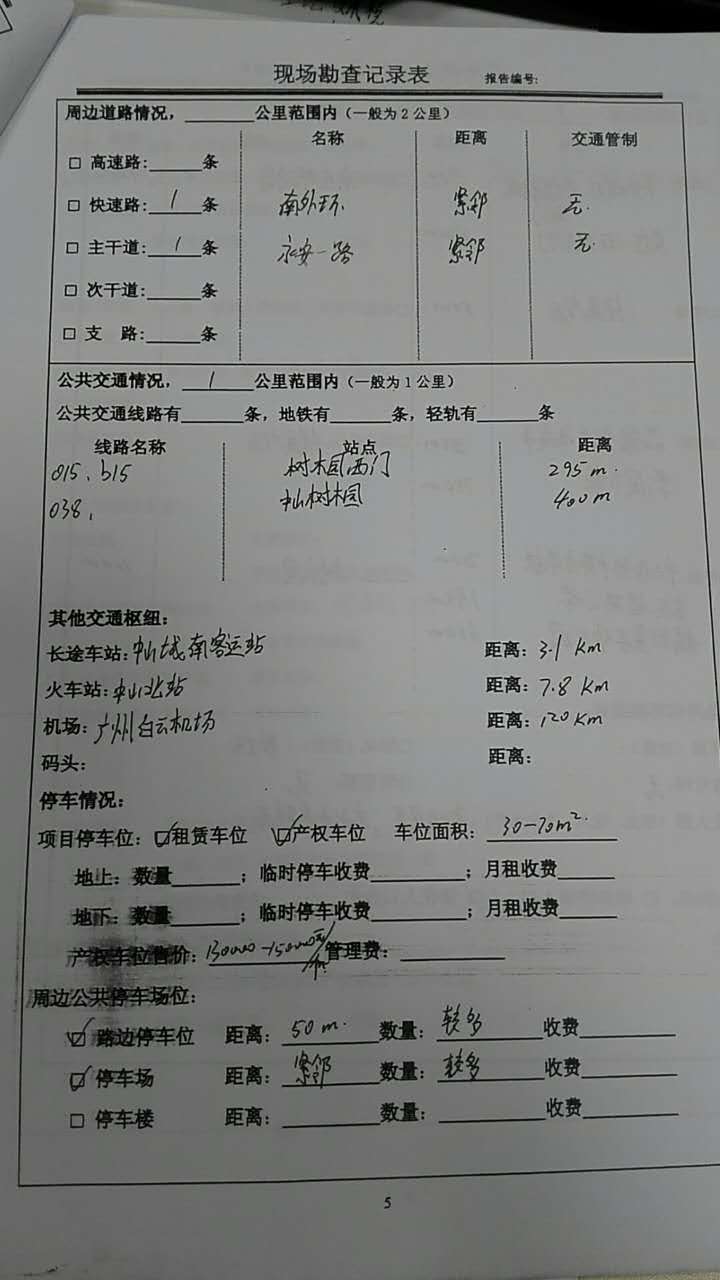 现场勘查记录表 报告编号:
周边道路情况，______公里范围内（一般为2公里）
名称 距离 交通管制
□ 高速路:______条
□ 快速路: 1 条 南外环 紧邻 无.
□ 主干道: 1 条 永安一路 紧邻 无.
□ 次干道:______条
□ 支 路:______条
公共交通情况， 1 公里范围内（一般为1公里）
公共交通线路有______条，地铁有______条，轻轨有______条
线路名称 站点 距离
015、b15 树木园西门 295m.
038, 中山树木园 400m
其他交通枢纽:
长途车站: 中山城南客运站 距离: 3.1 Km
火车站: 中山北站 距离: 7.8 Km
机场: 广州白云机场 距离: 120 Km
码头: 距离:
停车情况:
项目停车位: ☑租赁车位 ☑产权车位 车位面积: 30-70m².
地上: 数量______; 临时停车收费________; 月租收费______
地下: 数量______; 临时停车收费________; 月租收费______
产权车位售价: 130000-150000元/个 管理费: ________
周边公共停车场位:
☑ 路边停车位 距离: 50m. 数量: 较多 收费________
☑ 停车场 距离: 紧邻 数量: 较多 收费________
□ 停车楼 距离: ________数量: ________收费________
5